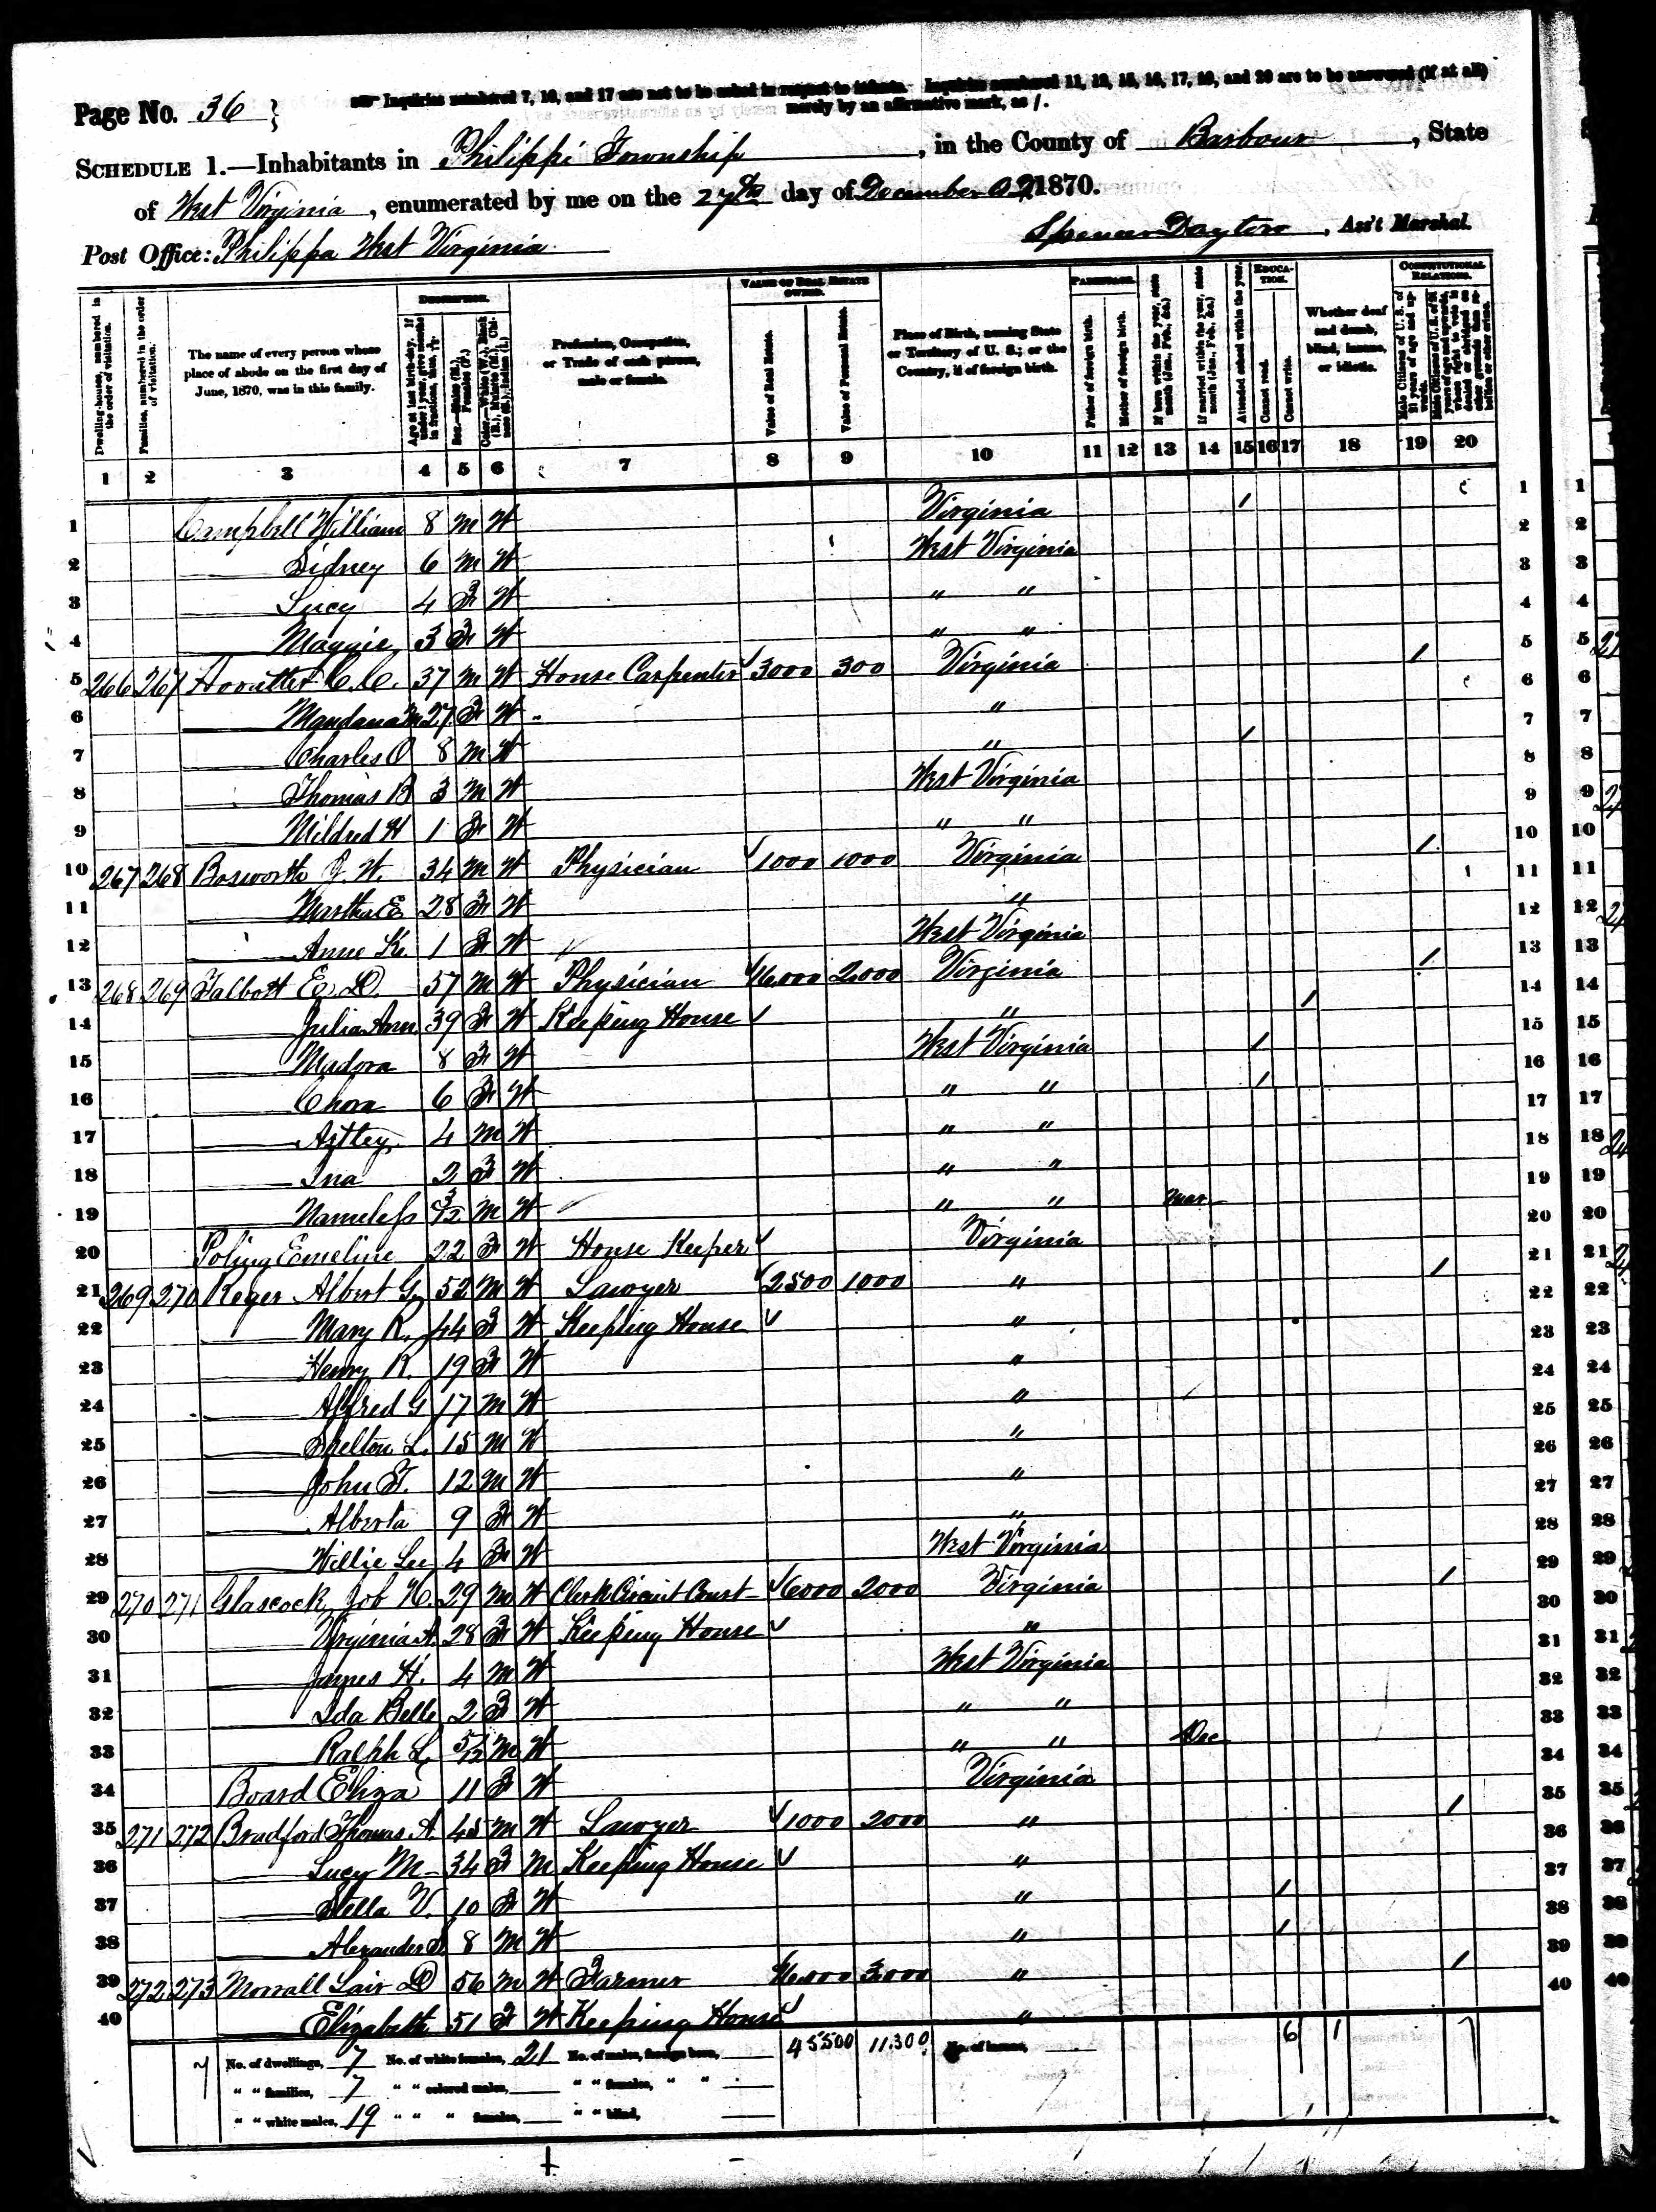 Page No. 36 } Inquiries numbered 7, 16, and 17 are not to be asked in respect to infants. Inquiries numbered 11, 12, 15, 16, 17, 19, and 20 are to be answered (if at all)
merely by an affirmative mark, as /.
SCHEDULE 1.—Inhabitants in Philippi Township, in the County of Barbour, State
of West Virginia, enumerated by me on the 27th day of December 1870.
Post Office: Philippa West Virginia Spencer Dayton, Ass't Marshal.
DESCRIPTION. VALUE OF REAL ESTATE OWNED. PARENTAGE. EDUCATION. CONSTITUTIONAL RELATIONS.
Dwelling-houses, numbered in the order of visitation.
Families, numbered in the order of visitation.
The name of every person whose place of abode on the first day of June, 1870, was in this family.
Age at last birth-day. If under 1 year, give months in fractions, thus, 3/12
Sex.—Males (M.), Females (F.)
Color.—White (W.), Black (B.), Mulatto (M.), Chinese (C.), Indian (I.)
Profession, Occupation, or Trade of each person, male or female.
Value of Real Estate.
Value of Personal Estate.
Place of Birth, naming State or Territory of U. S.; or the Country, if of foreign birth.
Father of foreign birth.
Mother of foreign birth.
If born within the year, state month (Jan., Feb., &c.)
If married within the year, state month (Jan., Feb., &c.)
Attended school within the year.
Cannot read.
Cannot write.
Whether deaf and dumb, blind, insane, or idiotic.
Male Citizens of U. S. of 21 years of age and upwards.
Male Citizens of U. S. of 21 years of age and upwards, whose right to vote is denied or abridged on other grounds than rebellion or other crime.
1 2 3 4 5 6 7 8 9 10 11 12 13 14 15 16 17 18 19 20
1 Campbell William 8 M W Virginia / 1
2 Sidney 6 M W West Virginia 2
3 Lucy 4 F W " " 3
4 Maggie 3 F W " " 4
5 266 267 C. C. 37 M W House Carpenter 3000 300 Virginia / 5
6 Mandana M 27 F W " 6
7 Charles O 8 M W " / 7
8 Thomas B 3 M W West Virginia 8
9 Mildred H 1 F W " " 9
10 267 268 Bosworth J. W. 34 M W Physician 1000 1000 Virginia / 10
11 Martha E 28 F W " 11
12 Anne K. 1 F W West Virginia 12
13 268 269 Talbott E. D. 57 M W Physician 16,000 2,000 Virginia / 13
14 Julia Ann 39 F W Keeping House " / 14
15 Medora 8 F W West Virginia / 15
16 Chora 6 F W " " / 16
17 4 M W " " 17
18 Ina 2 F W " " 18
19 Nameless 3/12 M W " " Mar 19
20 Poling Emeline 22 F W House Keeper Virginia 20
21 269 270 Reger Albert G. 52 M W Lawyer 2500 1000 " / 21
22 Mary R. 44 F W Keeping House " 22
23 Henry R. 19 F W " 23
24 Alfred G 17 M W " 24
25 Shelton L. 15 M W " 25
26 John F. 12 M W " 26
27 Alberta 9 F W " 27
28 Willie Lee 4 F W West Virginia 28
29 270 271 Glascock Job H. 29 M W Clerk Circuit Court 6000 2000 Virginia / 29
30 Virginia A. 28 F W Keeping House " 30
31 James H. 4 M W West Virginia 31
32 Ida Belle 2 F W " " 32
33 Ralph L 5/12 M W " " Dec 33
34 Board Eliza 11 F W Virginia 34
35 271 272 Bradford Thomas A 45 M W Lawyer 1000 2000 " / 35
36 Lucy M 34 F M Keeping House " 36
37 Stella V. 10 F W " / 37
38 Alexander S. 8 M W " / 38
39 272 273 Morrall Lair D 56 M W Farmer 16,000 3,000 " / 39
40 Elizabeth 51 F W Keeping House " 40
7 No. of dwellings, 7 No. of white females, 21 No. of males, foreign born, 45500 11.300 No. of insane, 6 1 7
" " families, 7 " " colored males, " " females, " "
" " white males, 19 " " " females, " " blind,